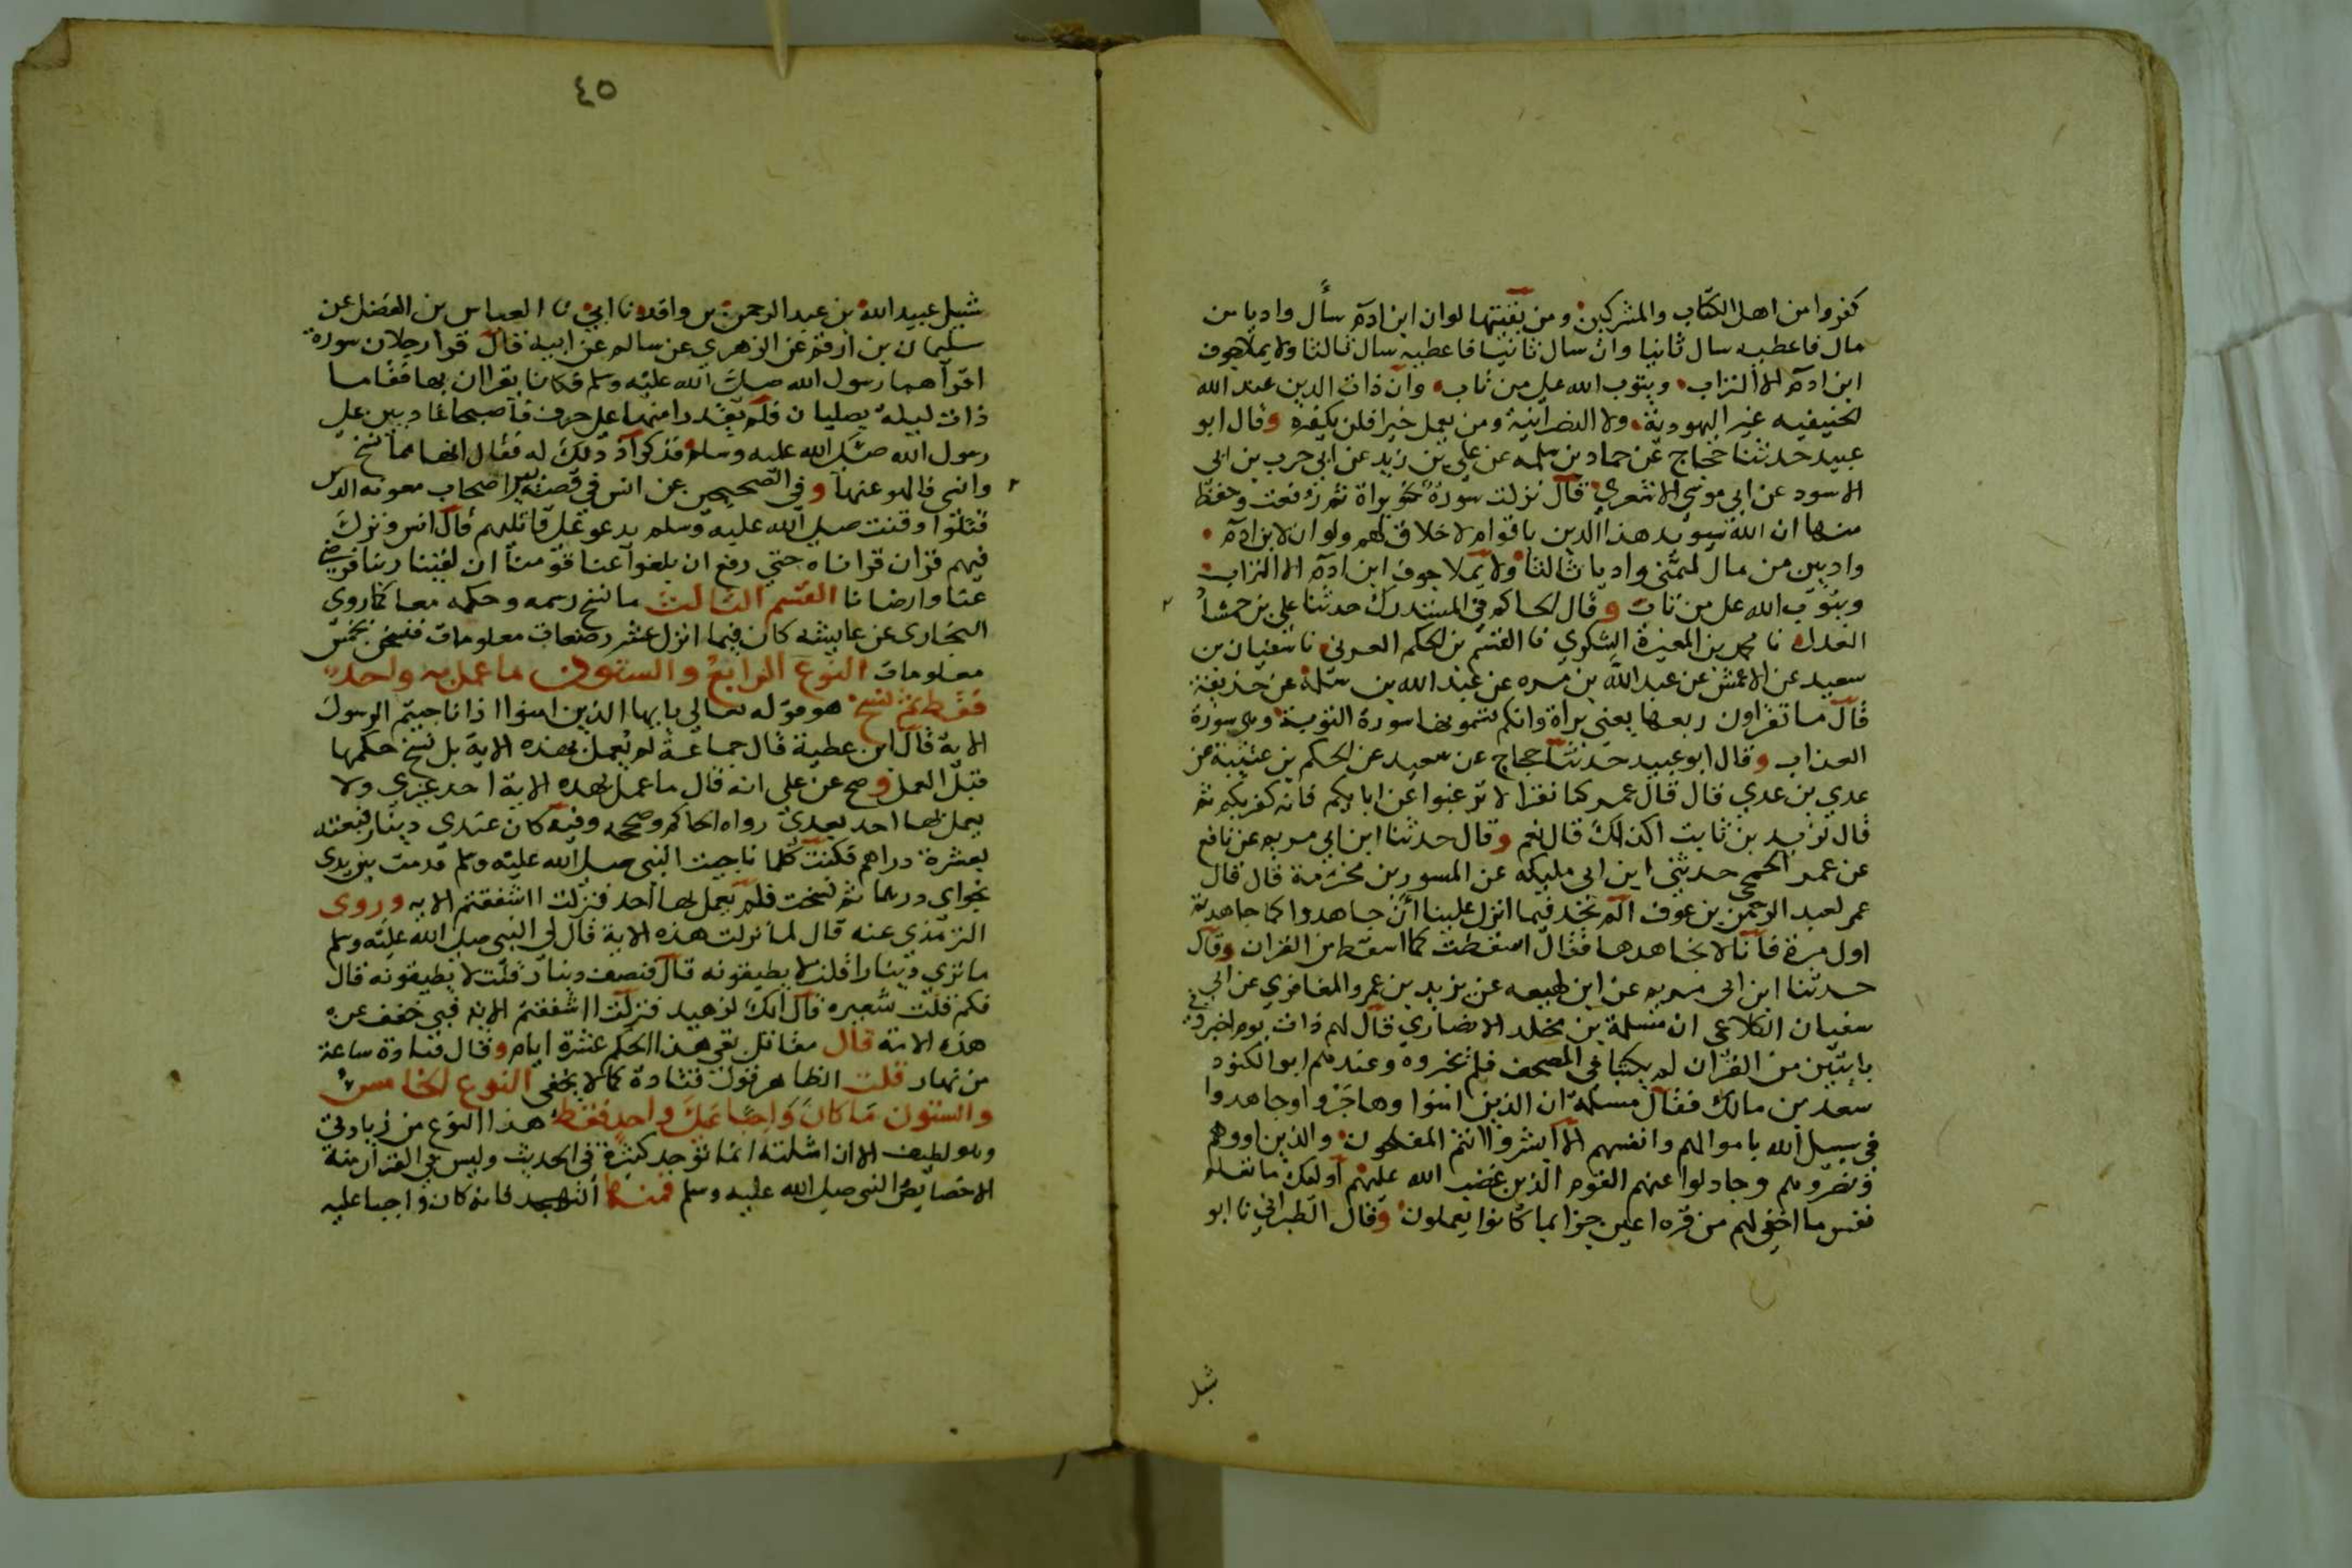 كفروا من اهل الكتاب والمشركين ومن بقيتها لوان ابن ادم سأل واديا من
مال فاعطيه سال ثانيا وان سال ثانيا فاعطيه سال ثالثا ولا يملا جوف
ابن ادم الا التراب ويتوب الله على من تاب وان ذات الدين عند الله
الحنيفيه غير اليهودية ولا النصرانية ومن يعمل خيرا فلن يكفره وقال ابو
عبيد حدثنا حجاج عن حماد بن سلمه عن علي بن زيد عن ابي حرب بن ابي
الاسود عن ابي موسى الاشعري قال نزلت سورة نحو براة ثم رفعت وحفظ
منها ان الله سيويد هذا الدين باقوام لا خلاق لهم ولو ان لابن ادم
واديين من مال لتمنى واديا ثالثا ولا يملا جوف ابن ادم الا التراب
ويتوب الله على من تاب وقال الحاكم في المستدرك حدثنا علي بن حمشاد
العدل نا محمد بن المغيرة اليشكري نا القسم بن الحكم العرني نا سفيان بن
سعيد عن الاعمش عن عبد الله بن مره عن عبد الله بن سلمة عن حذيفة
قال ما تقراون ربعها يعني براة وانكم تسمونها سورة التوبة وهي سورة
العذاب وقال ابو عبيد حدثنا حجاج عن سعيد عن الحكم بن عتيبة عن
عدي بن عدي قال قال عمر كنا نقرا لا ترغبوا عن ابايكم فانه كفر بكم ثم
قال لزيد بن ثابت اكذلك قال نعم وقال حدثنا ابن ابي مريم عن نافع
عن عمر الجمحي حدثني ابن ابي مليكه عن المسور بن مخرمة قال قال
عمر لعبد الرحمن بن عوف الم تجد فيما انزل علينا ان جاهدوا كما جاهدتم
اول مرة فانا لا نجدها فقال اسقطت كما اسقط من القران وقال
حدثنا ابن ابي مريم عن ابن لهيعه عن يزيد بن عمرو المغافري عن ابي
سفيان الكلاعي ان مسلمة بن مخلد الانصاري قال لهم ذات يوم اخبروني
بايتين من القران لم يكتبا في المصحف فلم يخبروه وعندهم ابو الكنود
سعد بن مالك فقال مسلمة ان الذين امنوا وهاجروا وجاهدوا
في سبيل الله باموالهم وانفسهم الا ابشروا انتم المفلحون والذين اووهم
ونصروهم وجادلوا عنهم القوم الذين غضب الله عليهم اوليك ما تعلم
نفس ما اخفي لهم من قره اعين جزا بما كانوا يعملون وقال الطبراني نا ابو
شبل
٤٥
شبل عبيد الله بن عبد الرحمن بن واقد نا ابي نا العباس بن الفضل عن
سليمان بن ارقم عن الزهري عن سالم عن ابيه قال قرا رجلان سورة
اقراهما رسول الله صلى الله عليه وسلم فكانا يقران بها فقاما
ذات ليلة يصليان فلم يقدرا منها على حرف فاصبحا غاديين على
رسول الله صلى الله عليه وسلم فذكرا ذلك له فقال انها مما نسخ
وانسي فالهو عنها وفي الصحيحين عن انس في قصة بير اصحاب معونه الذين
قتلوا وقنت صلى الله عليه وسلم يدعو على قاتليهم قال انس ونزل
فيهم قران قراناه حتي رفع ان بلغوا عنا قومنا ان لقينا ربنا فرضي
عنا وارضانا القسم الثالث ما نسخ رسمه وحكمه معا كما روى
البخارى عن عايشه كان فيما انزل عشر رضعات معلومات فنسخن بخمس
معلومات النوع الرابع والستون ما عمل به واحد
فقط ثم نسخ هو قوله تعالى يايها الذين امنوا اذا ناجيتم الرسول
الاية قال ابن عطية قال جماعة لم يعمل بهذه الاية بل نسخ حكمها
قبل العمل وصح عن علي انه قال ما عمل بهذه الاية احد غيري ولا
يعمل بها احد بعدي رواه الحاكم وصححه وفيه كان عندي دينار فبعته
بعشرة دراهم فكنت كلما ناجيت النبي صلى الله عليه وسلم قدمت بين يدي
نجواي درهما ثم نسخت فلم يعمل بها احد فنزلت ااشفقتم الايه وروى
الترمذي عنه قال لما نزلت هذه الاية قال لي النبي صلى الله عليه وسلم
ما ترى دينارا قلت لا يطيقونه قال فنصف دينار قلت لا يطيقونه قال
فكم قلت شعيره قال انك لزهيد فنزلت ااشفقتم الاية فبي خفف عن
هذه الامة قال مقاتل بقي هذا الحكم عشرة ايام وقال قتادة ساعة
من نهار قلت الظاهر قول قتادة كما لا يخفى النوع الخامس
والستون ما كان واجبا على واحد فقط هذا النوع من زيادتي
وهو لطيف الا ان امثلته انما توجد كثيرة في الحديث وليس في القران منه
الا خصايص النبي صلى الله عليه وسلم فمنها التهجد فانه كان واجبا عليه